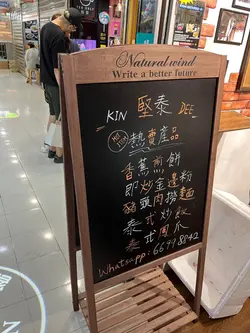 Natural wind
Write a better future
KIN 堅泰 DEE
熱賣產品
香蕉煎餅
即炒金邊粉
豬頭肉撈麵
泰式炒飯
泰式鳳爪
Whatsapp: 6699 8842